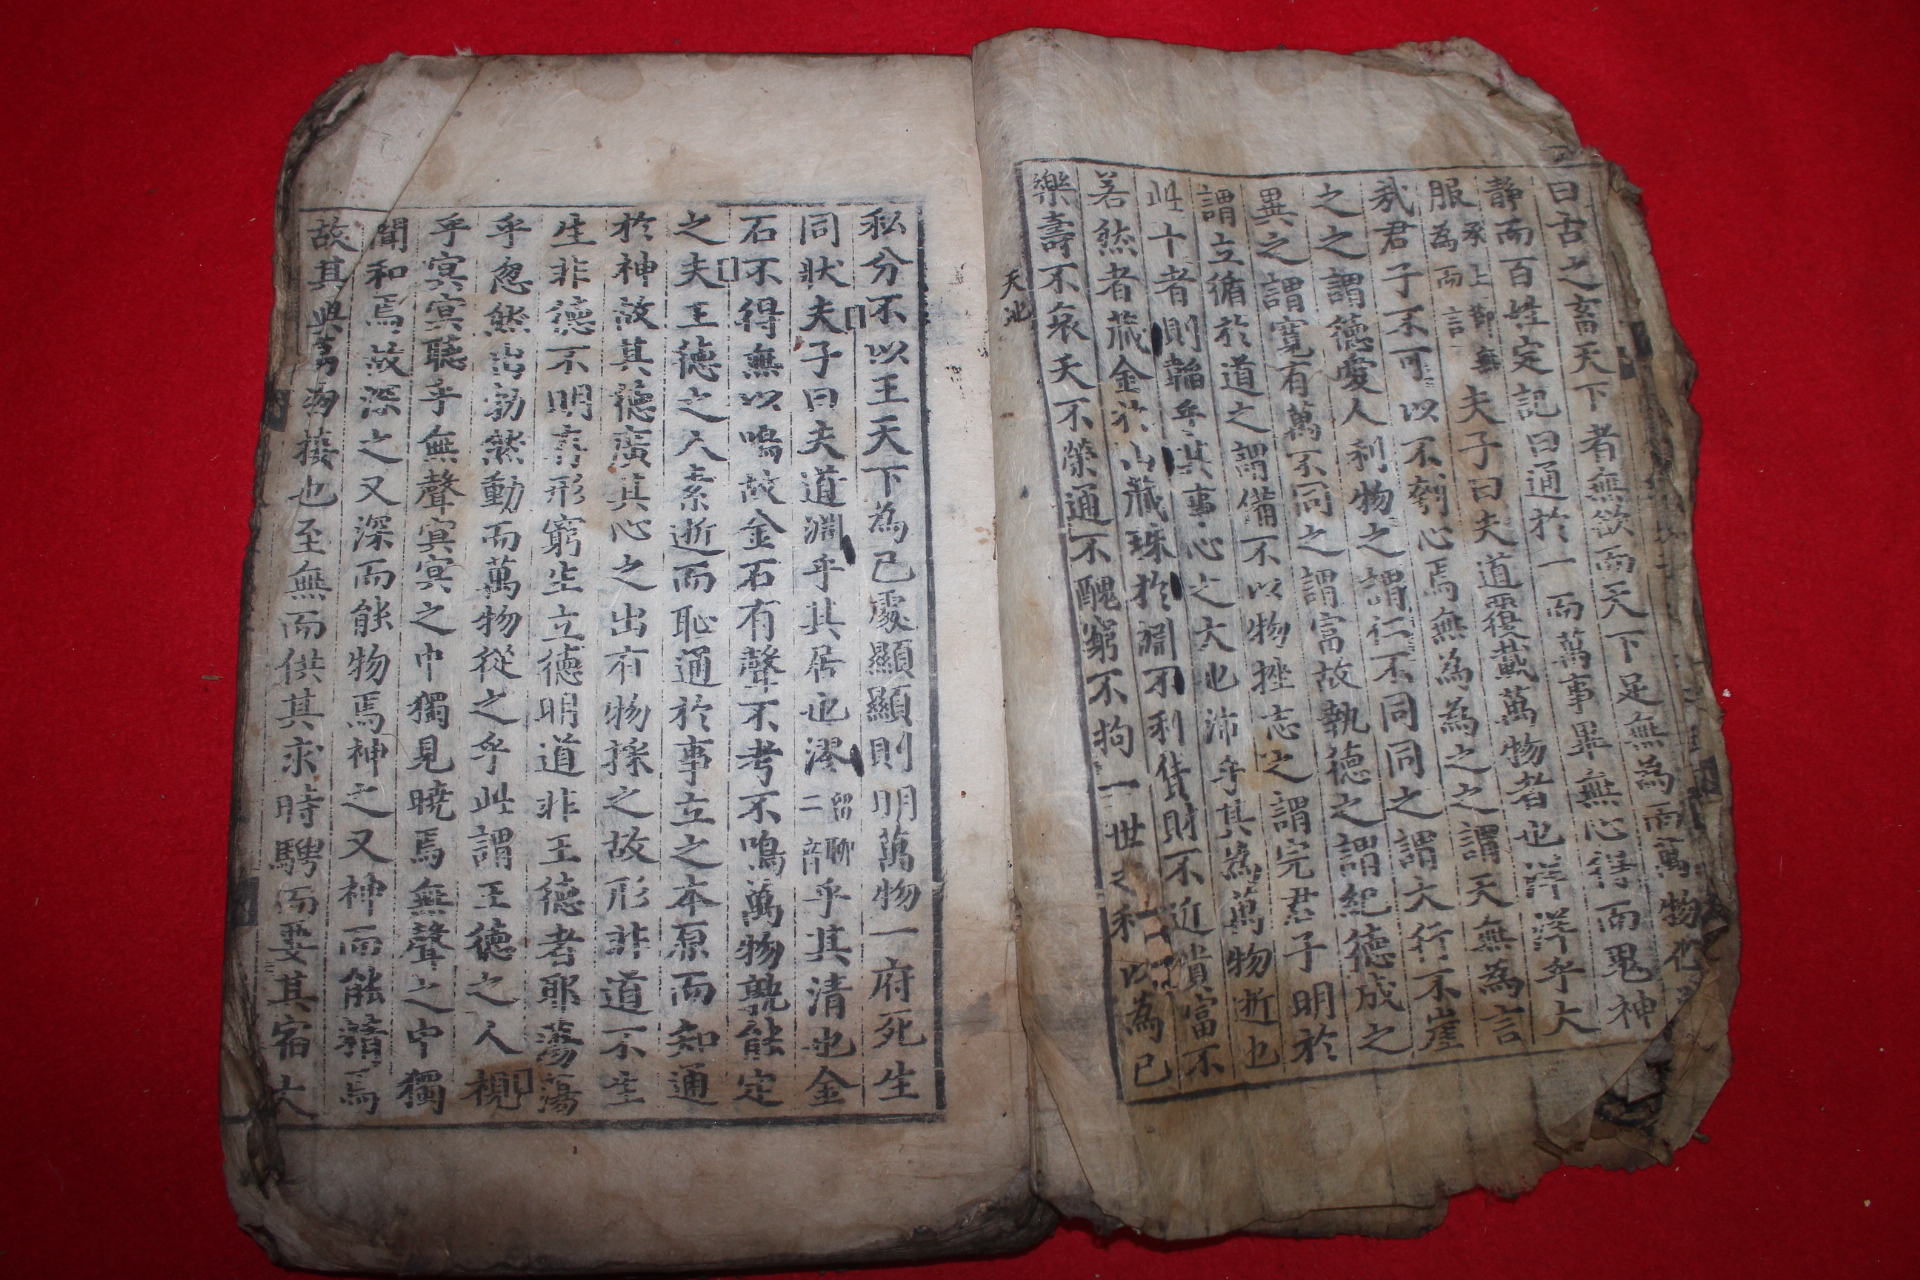 曰古之畜天下者無欲而天下足無為而萬物化
静而百姓定記曰通於一而萬事畢無心得而鬼神
服承上節無為而言夫子曰夫道覆載萬物者也洋洋乎大
哉君子不可以不刳心焉無為為之之謂天無為言
之之謂德愛人利物之謂仁不同同之之謂大行不崖
異之謂寬有萬不同之謂富故執德之謂紀德成之
謂立循於道之謂備不以物挫志之謂完君子明於
此十者則韜乎其事心之大也沛乎其為萬物逝也
若然者藏金於山藏珠於淵不利貨財不近貴富不
樂壽不哀夭不榮通不醜窮不拘一世之利以為己
天池
私分不以王天下為己處顯顯則明萬物一府死生
同狀夫子曰夫道淵乎其居也漻留聊二音乎其清也金
石不得無以鳴故金石有聲不考不鳴萬物孰能定
之夫王德之人素逝而恥通於事立之本原而知通
於神故其德廣其心之出有物採之故形非道不生
生非德不明存形窮生立德明道非王德者耶蕩蕩
乎忽然出勃然動而萬物從之乎此謂王德之人視
乎冥冥聽乎無聲冥冥之中獨見曉焉無聲之中獨
聞和焉故深之又深而能物焉神之又神而能精焉
故其與萬物接也至無而供其求時騁而要其宿大